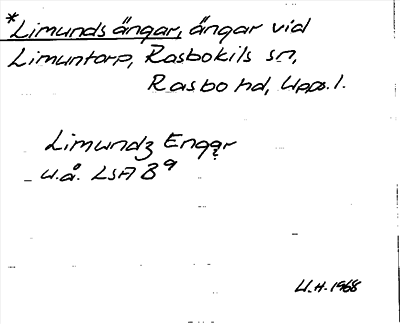 *Limunds ängar, ängar vid
Limuntorp, Rasbokils sn,
Rasbo hd, Upps. l.
Limundz Engær
u.å. LSA B 9
U.H. 1968